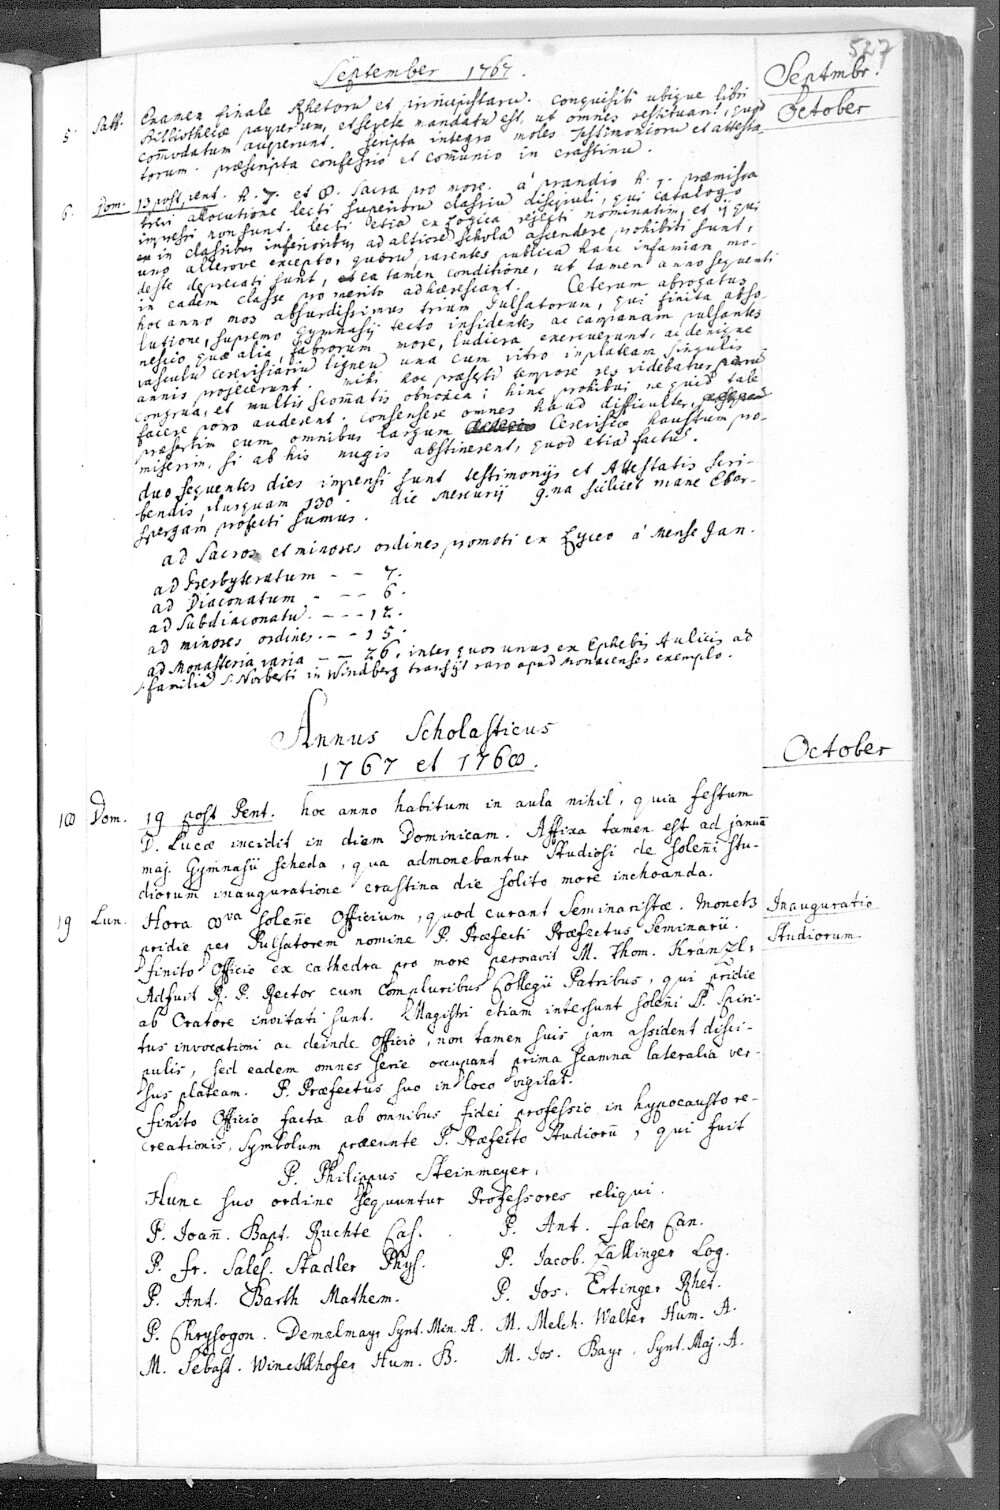 527
September 1767.
Septmbr.
October
5. Satt. Examen finale Rhetoru et principistaru. conquisiti ubique libri
Bibliothecæ pauperum, et severe mandatu est, ut omnes restituant, quod
com̄odatum acceperunt. scripta integra moles Testimonioru et attesta-
torum. præscripta confessio et com̄unio in crastinu.
6. Dom. 13 post pent. h. 7. et 8. Sacra pro more. à prandio h. 1. præmissa
brevi allocutione lecti superioru classiu discipuli, qui catalogo
impressi non sunt. lecti etia ex Logica rejecti nominatim, et ij qui
ex in classibus inferioribus ad altiore schola ascendere prohibiti sunt,
uno alterove excepto, quoru parentes publica hanc infamiam mo-
deste deprecati sunt, ea tamen conditione, ut tamen anno sequenti
in eadem classe pro merito adhærescant. Ceterum abrogatus
hoc anno mos absurdissimus trium Pulsatorum, qui finita abso-
lutione, supremo Gymnasij tecto insidentes ac campanam pulsantes
nescio quæ alia, fabrorum more, ludicra exercuerunt, ac denique
vasculu cerevisiariu ligneu una cum vitro in plateam singulis
annis projecerunt. mihi hoc præsenti tempore res videbatur paru
congrua, et multis scom̄atis obnoxia; hinc prohibui ne quid tale
facere porro auderent. consensere omnes haud difficulter,
præsertim cum omnibus largum Cerevisiæ haustum pro-
miserim, si ab his nugis abstinerent, quod etia factu.
duo sequentes dies impensi sunt testimonijs et Attestatis scri-
bendis, plusquam 130. die Mercurij 9.na scilicet mane Eber-
spergam profecti sumus.
ad Sacros et minores ordines promoti ex Lyceo à Mense Jan.
ad Presbyteratum - - 7.
ad Diaconatum - - - 6.
ad Subdiaconatu - - - 12.
ad minores ordines - - 15.
ad Monasteria varia - - 26, inter quos unus ex Ephebis Aulicis ad
familia S. Norberti in Windberg transijt raro apud Monacenses exemplo.
Annus Scholasticus
1767 et 1768.
October
18 Dom. 19 post Pent. hoc anno habitum in aula nihil, quia festum
D. Lucæ incidit in diem Dominicam. Affixa tamen est ad januā
maj. Gymnasii scheda, qua admonebantur Studiosi de solen̄i stu-
diorum inauguratione crastina die solito more inchoanda.
19 Lun. Hora 8va solen̄e Officium, quod curant Seminaristæ. Monetz
Inauguratio
Studiorum
pridie per Pulsatorem nomine P. Præfecti Præfectus Seminarii.
finito Officio ex cathedra pro more peroravit M. Thom. Kränzl,
Adfuit R. P. Rector cum compluribus Collegii Patribus, qui pridie
ab Oratore invitati sunt. Magistri etiam intersunt solen̄i S. Spiri-
tus invocationi ac deinde Officio, non tamen suis jam assident disci-
pulis, sed eadem omnes serie occupant prima scamna lateralia ver-
sus plateam. P. Præfectus suo in loco vigilat.
finito Officio facta ab omnibus fidei professio in hypocausto re-
creationis, Symbolum præeunte P. Præfecto Studiorū, qui fuit
P. Philippus Steinmeyer.
Hunc suo ordine sequuntur Professores reliqui.
P. Joan̄. Bapt. Ruchte Cas. P. Ant. Faber Can.
P. Fr. Sales. Stadler Phys. P. Jacob. Zallinger Log.
P. Ant. Barth Mathem. P. Jos. Ertinger Rhet.
P. Chrysogon. Demelmayr Synt. Min. A. M. Melch. Walter Hum. A.
M. Sebast. Wincklhofer Hum. B. M. Jos. Bayr, Synt. Maj. A.